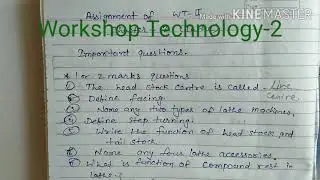 Made with
KINEMASTER
Assignment of WT-II
Workshop Technology-2
Important questions.
* 1 or 2 marks questions
① The head stock centre is called - Live
Centre.
② Define facing.
③ Name any two types of lathe machines,
④ Define Step turning.
⑤ Write the function of head stock and
tail stock.
⑥ Name any four lathe accessories,
⑦ What is function of Compound rest in
lathe.?